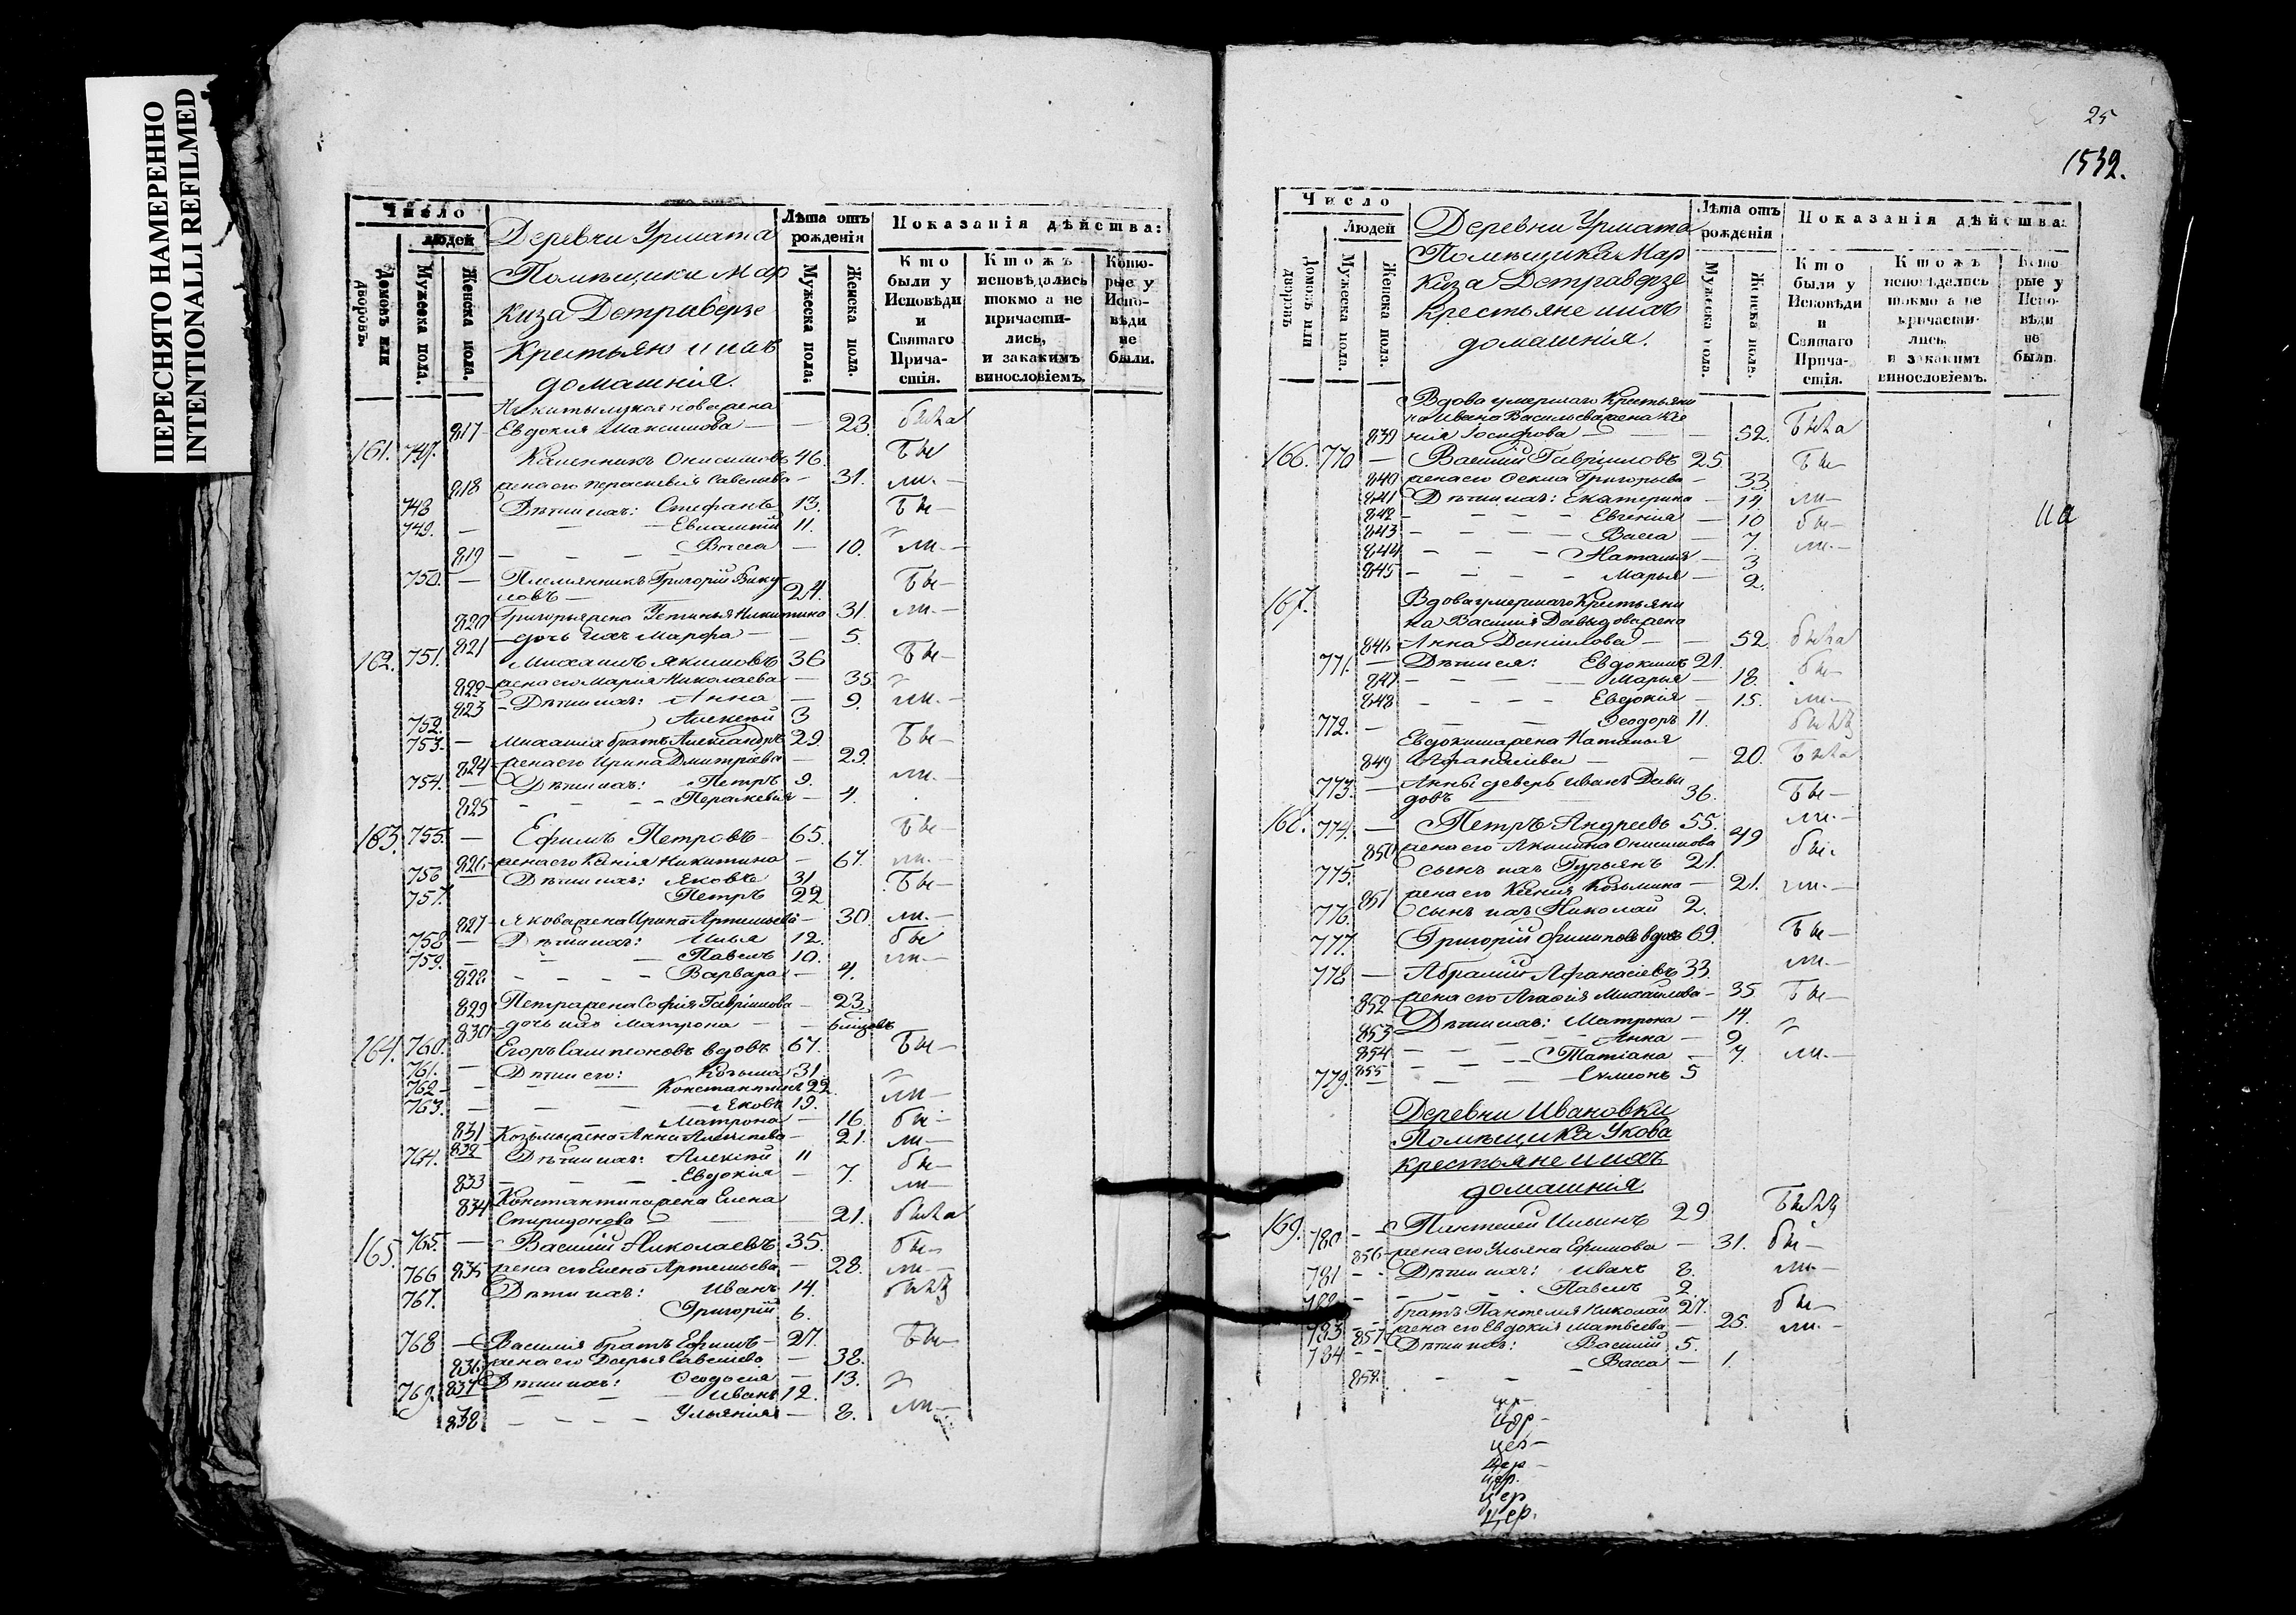 ПЕРЕСНЯТО НАМЕРЕННО
INTENTIONALLI REFILMED
Число
людей
Домовъ или дворовъ.
Мужеска пола.
Женска пола.
Деревни Урмата
Помѣщика Мар
киза Детраверзе
Крестьяне и ихъ
домашнія.
Лѣта отъ рожденія
Мужеска пола.
Женска пола.
Показанія дѣйства:
Кто были у Исповѣди и Святаго Причастія.
Ктожъ исповѣдались токмо а не причастились, и закакимъ винословіемъ.
Которые у Исповѣди не были.
817 Евдокия Максимова — 23. была
161. 747. Онисимовъ 46. бы
818 жена его Параскевия Савельева — 31. ли. —
748 Дѣти ихъ: Стефанъ 13. бы —
749. — 11.
819 Васса — 10. ли. —
750. — Племянникъ Григорій Вику
ловъ — 24. бы —
820 Григорья жена Устинья Никитина 31. ли. —
821 дочь ихъ Марфа — 5.
162. 751. Михаилъ Якимовъ 36 бы —
822 жена его Мария Николаева — 35.
823 Дѣти ихъ: Анна — 9. ли. —
752. Алексей 3
753. — Михаила братъ Александръ 29. бы —
824 жена его Ирина Дмитріева — 29.
754. — Дѣти ихъ: Петръ 9. ли. —
825 Параскевия — 4.
163. 755. — Ефимъ Петровъ 65. бы —
826 жена его Ксенія Никитина — 67. ли. —
756 Дѣти ихъ: Яковъ 31 бы —
757. Петръ 22
827 Якова жена Ирина Артемьева — 30. ли. —
758 — Дѣти ихъ: Илья 12. бы
759. Павелъ 10. ли. —
828 Варвара — 4.
829 Петра жена Софія Гаврилова — 23.
830 дочь ихъ Матрона —
164. 760. Егоръ вдовъ 67. бы —
761. — Дѣти его: Козьма 31.
762 — Константинъ 22.
763. — Яковъ 19. ли —
831 Матрона — 16. бы —
832 Козьмы жена Анна Алексеева — 21. ли —
764. Дѣти ихъ: Алексей 11 бы —
833 Евдокія — 7. ли —
834 Константина жена Елена
Спиридонова — 21. была
165. 765. — Василій Николаевъ 35. бы —
766 835 жена его Елена Артемьева — 28. ли —
767. Дѣти ихъ: Иванъ 14. былъ
Григорій 6.
768 — Василия братъ Ефимъ — 27. бы —
836 жена его Дарья Савельева — 38.
837 Дѣти ихъ: Феодосия — 13.
769. Иванъ 12.
838 Ульяния — 8. ли —
25
1532.
Число
Людей
Домовъ или дворовъ
Мужеска пола.
Женска пола.
Деревни Урмата
Помѣщика Мар
киза Детраверзе
Крестьяне и ихъ
домашнія.
Лѣта отъ рожденія
Мужеска пола.
Женска пола.
Показанія дѣйства:
Кто были у Исповѣди и Святаго Причастія.
Ктожъ исповѣдались токмо а не причастились, и закакимъ винословіемъ.
Которые у Исповѣди не были.
Вдова умершаго Крестьяни
на Ивана Васильева жена Ксе
839 нія Іосифова — 52. была
166. 770 — Василий Гавріиловъ 25. бы —
840 жена его Фекла Григорьева — 33.
841 Дѣти ихъ: Екатерина — 14. ли —
842 Евгенія — 10 бы —
843 Васса — 7. ли. —
844 Наталья — 3
845 Марья — 2.
167. Вдова умершаго Крестьяни
на Василия Давыдова жена
846 Анна Даніилова — 52. была
771. — Дѣти ея: Евдокимъ 21.
847 Марья — 18. бы —
848 Евдокия — 15. ли —
772. — Феодоръ 11. былъ
Евдокима жена Наталья
849 Афанасиева — 20. была
773. — Анны деверь Иванъ Давы
довъ — 36. бы —
168. 774. — Петръ Андреевъ 55. ли. —
850 жена его Акилина Онисимова 49
775. сынъ ихъ Гурьянъ 21. бы.
851 жена его Ксения Козьмина — 21. ли. —
776. сынъ ихъ Николай 2.
777. Григорій Филиповъ вдовъ 69. бы —
778. — Абрамий Афанасіевъ 33. ли. —
852 жена его Агафія Михайлова — 35 бы —
853 Дѣти ихъ: Матрона — 14.
854 Анна — 9.
855 Татіана — 7. ли. —
779. Симеонъ 5
Деревни Ивановки
Помѣщика Укова
крестьяне и ихъ
домашнія
169. 780 — Пантелей Ильинъ 29 былъ
856 жена его Ульяна Ефимова — 31. бы —
781 Дѣти ихъ: Иванъ 8. ли —
782 Павелъ 2.
братъ Пантелея Николай 27. бы —
783 857 жена его Евдокия Матвеева — 25. ли. —
784 Дѣти ихъ: Василий 5.
858. Васса — 1.
цер.
цер.